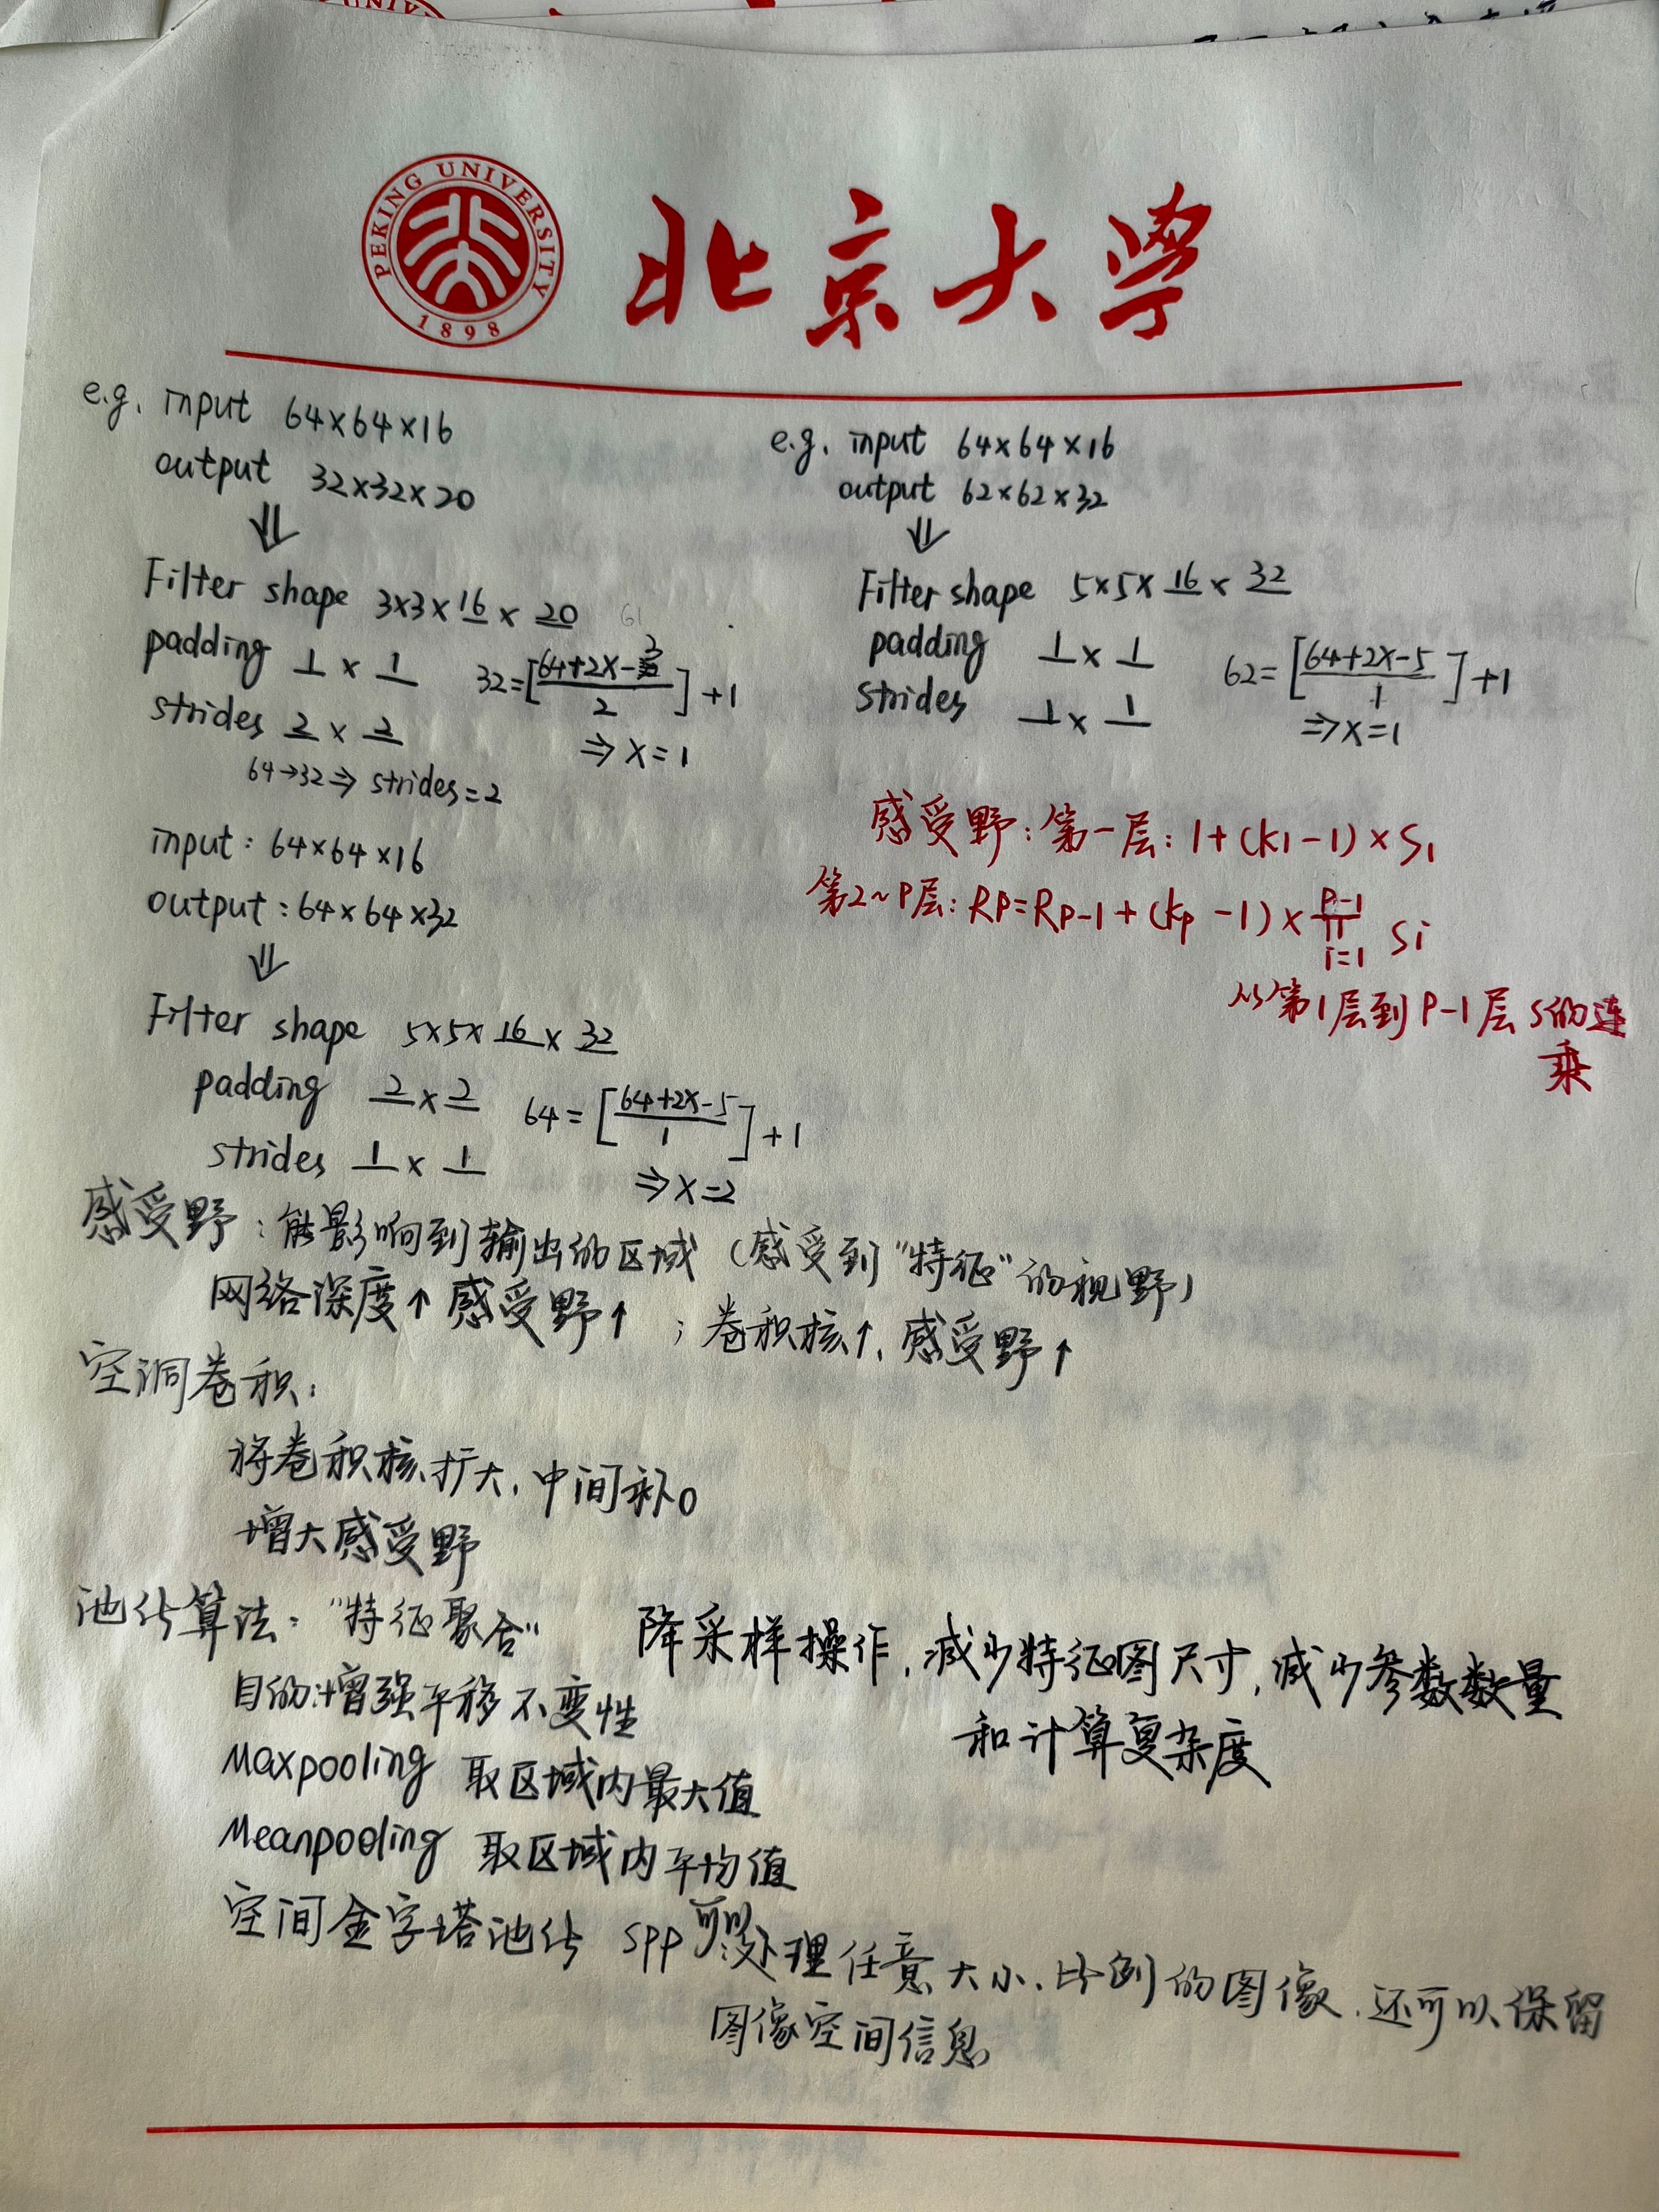 PEKING UNIVERSITY
1898
北京大学
e.g. input 64×64×16
output 32×32×20
⇓
Filter shape 3×3×16×20
padding 1×1 32=[(64+2x-3)/2]+1
strides 2×2 ⇒x=1
64→32⇒strides=2
e.g. input 64×64×16
output 62×62×32
⇓
Filter shape 5×5×16×32
padding 1×1 62=[(64+2x-5)/1]+1
strides 1×1 ⇒x=1
input: 64×64×16
output: 64×64×32
⇓
Filter shape 5×5×16×32
padding 2×2 64=[(64+2x-5)/1]+1
strides 1×1 ⇒x=2
感受野:第一层:1+(k1-1)×S1
第2~P层:RP=RP-1+(kp-1)×∏(i=1→P-1) Si
第1层到P-1层S的连
乘
感受野:能影响到输出的区域(感受到"特征"的视野)
网络深度↑感受野↑;卷积核↑,感受野↑
空洞卷积:
将卷积核扩大,中间补0
增大感受野
池化算法:"特征聚合" 降采样操作,减少特征图尺寸,减少参数数量
和计算复杂度
目的:增强平移不变性
Maxpooling 取区域内最大值
Meanpooling 取区域内平均值
空间金字塔池化 spp可以处理任意大小、比例的图像,还可以保留
图像空间信息